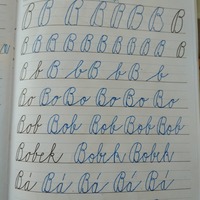 B B B B B B B B
B B B B B B B B B B B
B b B b B b B b
Bo Bo Bo Bo Bo Bo
Bob Bob Bob Bob Bob
Bobek Bobek Bobek
Bá Bá Bá Bá Bá